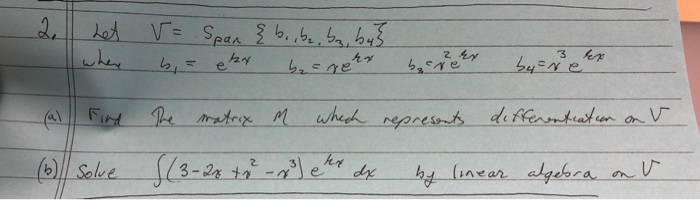 2. Let V = Span { b₁, b₂, b₃, b₄ }
where b₁ = e^{kx} b₂ = xe^{kx} b₃ = x²e^{kx} b₄ = x³e^{kx}
(a) Find The matrix M which represents differentiation on V
(b) Solve ∫(3-2x+x²-x³)e^{kx} dx by linear algebra on V